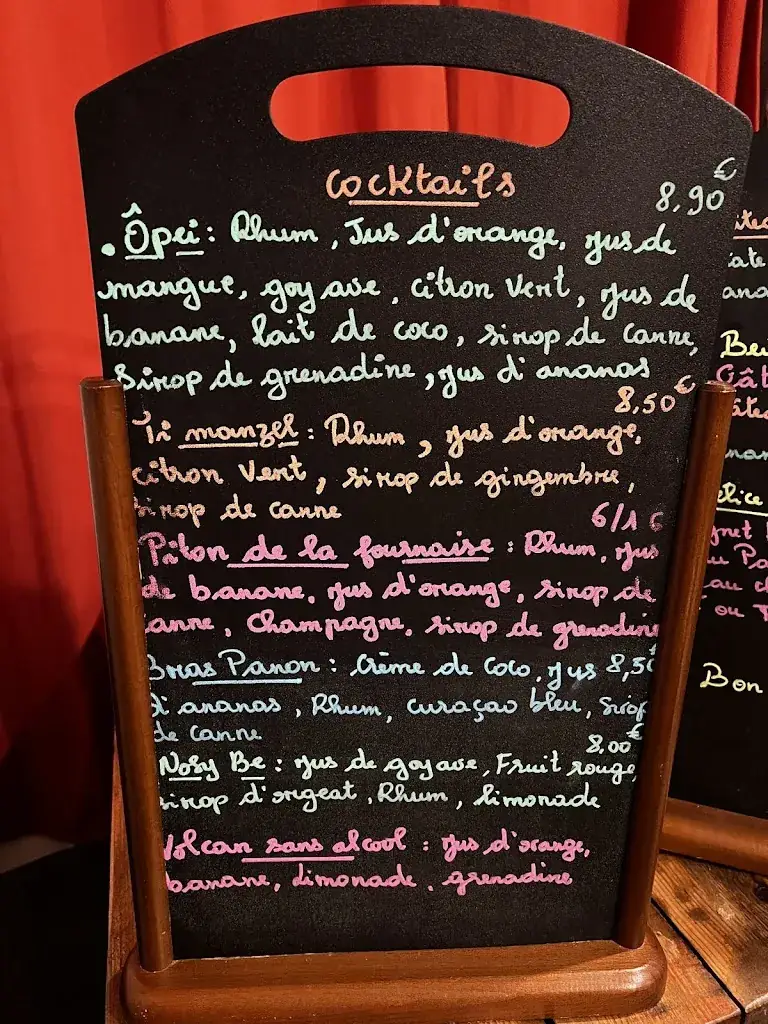 Cocktails
8,90 €
. Ôpei : Rhum, Jus d'orange, jus de
mangue, goyave, citron vert, jus de
banane, lait de coco, sirop de canne,
Sirop de grenadine, jus d'ananas
8,50 €
Ti manzel : Rhum, jus d'orange,
citron vert, sirop de gingembre,
sirop de canne
Piton de la fournaise : Rhum, jus
de banane, jus d'orange, sirop de
canne, Champagne, sirop de grenadine
Bras Panon : Crème de coco, jus 8,50
d'ananas, Rhum, curaçao bleu, Sirop
de canne
8,00 €
Nosy Be : jus de goyave, Fruit rouge,
sirop d'orgeat, Rhum, limonade
Volcan sans alcool : jus d'orange,
banane, limonade, grenadine
Bon